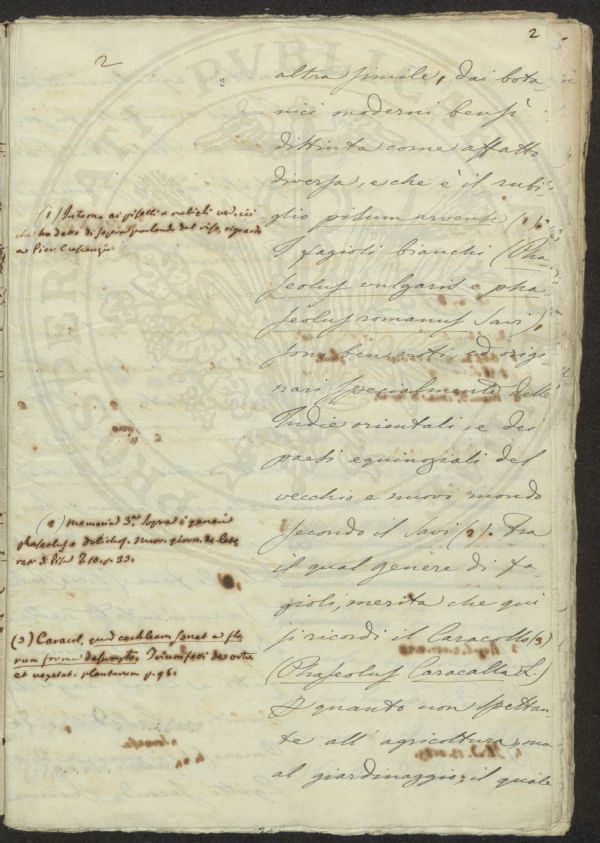 2
2
2
altra simile, dai bota-
nici moderni bensì
distinta come affatto
diversa, e che è il rubi-
glio pisum arvense (1).
I fagioli bianchi (Pha
seolus vulgaris e pha
seolus romanus Savi),
sono ben noti, ed origi
nari specialmente delle
Indie orientali, e dei
paesi equinoziali del
vecchio e nuovo mondo
secondo il Savi (2). Tra
il qual genere di fa-
gioli, merita che qui
si ricordi il Caracollo (3)
(Phaseolus Caracalla L.)
quanto non spettan-
te all'agricoltura, ma
al giardinaggio; il quale
(1) Intorno ai piselli e rubigli ved. ciò
che ho detto di sopra parlando del riso, riguardo
a Pier Crescenzio
(2) Memoria 3.a sopra i generi
phaseolus e dolichos. nuov. giorn. de lette
rat. di Pisa T. 10. p. 33.
(3) Caracol, quod cochleam sonat a flo
rum forma desumpto. Triumfetti de ortu
et vegetat. plantarum p. 96.
PROSPERITATI PUBLICAE